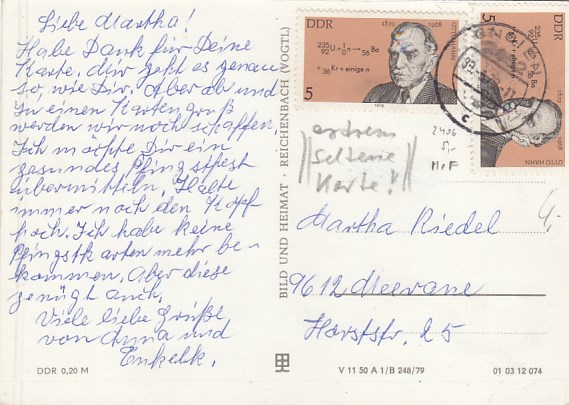 Liebe Martha!
Habe Dank für Deine
Karte, mir geht es genau
so, wie Dir. Aber ab und
zu einen Kartengruß
werden wir noch schaffen.
Ich möchte Dir ein
gesundes Pfingstfest
übermitteln. Halte
immer noch den Kopf
hoch. Ich habe keine
Pfingstkarten mehr be-
kommen. Aber diese
genügt auch.
Viele liebe Grüße
von Anna und
DDR 0,20 M
BILD UND HEIMAT · REICHENBACH (VOGTL)
DDR
1879
1968
OTTO HAHN
235 92 U + 1 0 n → 56 Ba
36 Kr + einige n
5
1979
DDR
5
235 92 U + 1 0 n → 56 Ba
36 Kr + einige n
1879
1968
OTTO HAHN
extrem
seltene
Karte!
2406
5,-
MeF
4,-
Martha Riedel
9612 Meerane
Horststr. 25
V 11 50 A 1/B 248/79
01 03 12 074